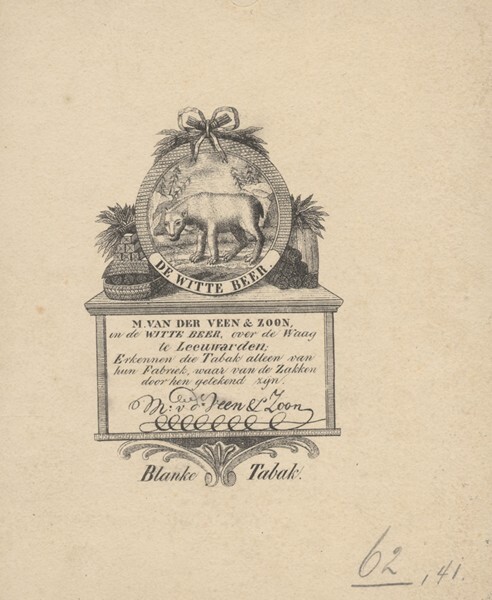 DE WITTE BEER.
M. VAN DER VEEN & ZOON,
in de WITTE BEER, over de Waag
te Leeuwarden;
Erkennen die Tabak alleen van
hun Fabriek, waar van de Zakken
door hen getekend zyn.
M: v d: Veen & Zoon
Blanke Tabak.
62, 41.